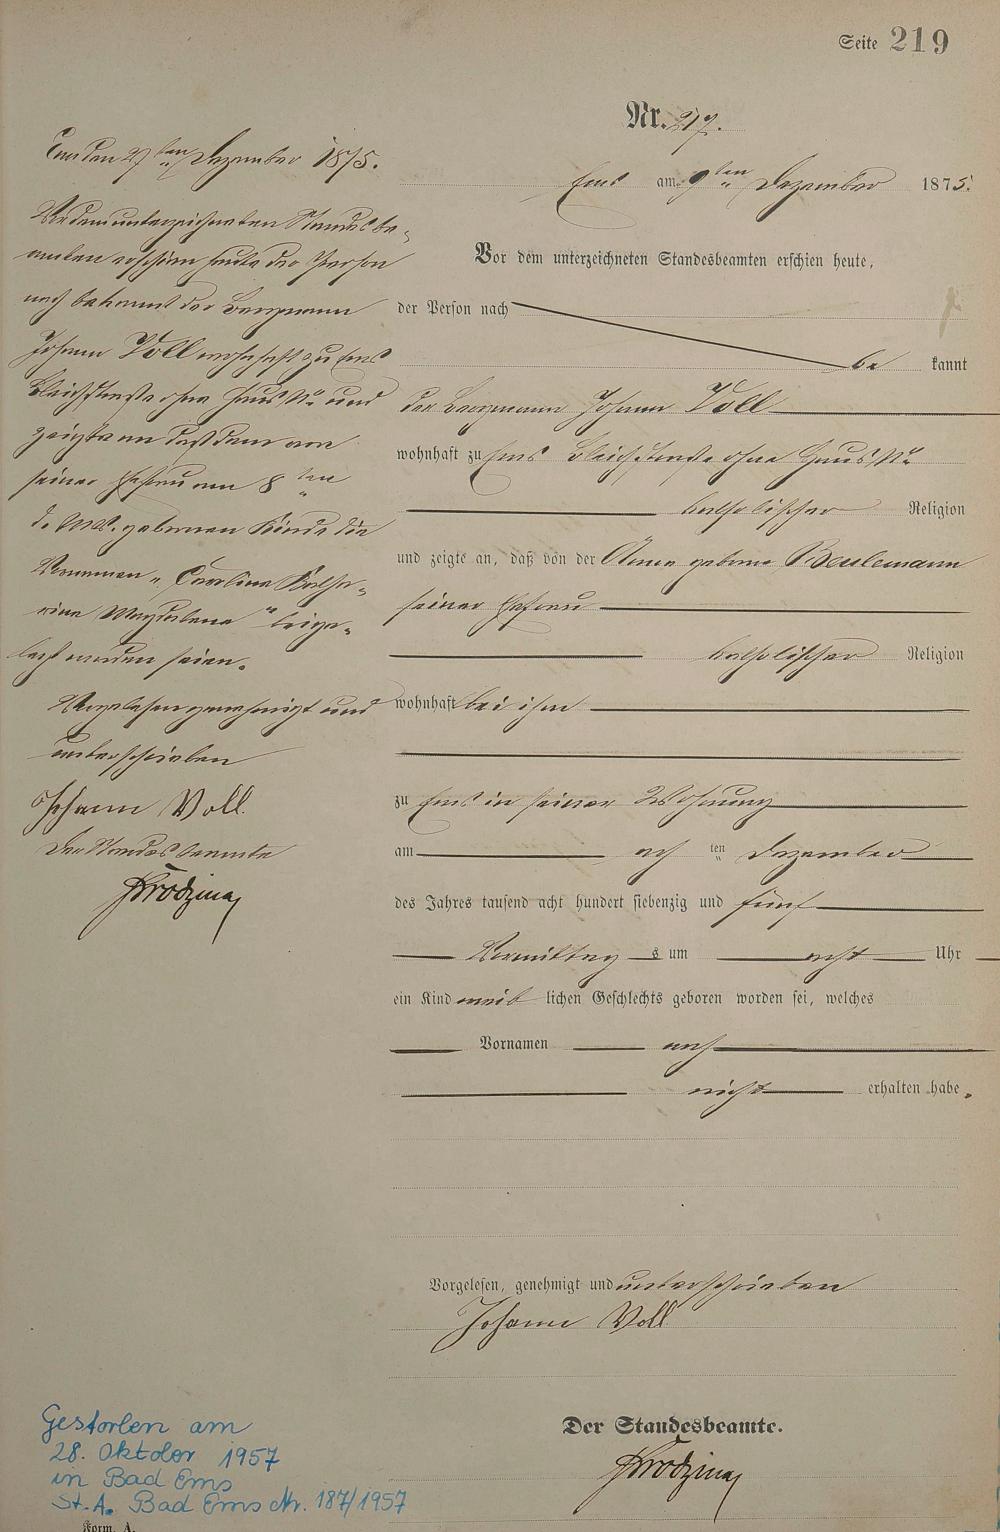 Seite 219
Nr. 217.
Ems am 9ten Dezember 1875.
Vor dem unterzeichneten Standesbeamten erschien heute,
der Person nach
be kannt
der Bergmann Johann Voll
wohnhaft zu Ems Bleichstraße ohne Haus No
katholischer Religion
und zeigte an, daß von der Anna geborne Beulemann
seiner Ehefrau
katholischer Religion
wohnhaft bei ihm
zu Ems in seiner Wohnung
am acht ten Dezember
des Jahres tausend acht hundert siebenzig und fünf
Vormittag s um acht Uhr
ein Kind weib lichen Geschlechts geboren worden sei, welches
Vornamen noch
nicht erhalten habe.
Vorgelesen, genehmigt und unterschrieben
Johann Voll
Der Standesbeamte.
Ems den 27ten Dezember 1875.
Vor dem unterzeichneten Standesbe-
amten erschien heute der Person
nach bekannt der Bergmann
Johann Voll wohnhaft zu Ems
Bleichstraße ohne Haus No und
zeigte an daß dem von
seiner Ehefrau am 8ten
d. Mts. gebornen Kinde die
Vornamen „Caroline Katha-
rina Magdalena" beige-
legt worden seien.
Vorgelesen genehmigt und
unterschrieben
Johann Voll.
Der Standesbeamte
Gestorben am
28. Oktober 1957
in Bad Ems
St. A. Bad Ems Nr. 187/1957
Form. A.